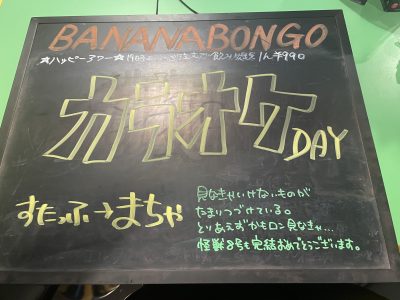 BANANABONGO
☆ハッピーアワー☆ 飲み放題 1人¥990
カラオケ
DAY
すたっふ→まちゃ
見なきゃいけないものが
たまりつづけている。
とりあえずかもロン見なきゃ...
怪獣8号も完結おめでとうございます。